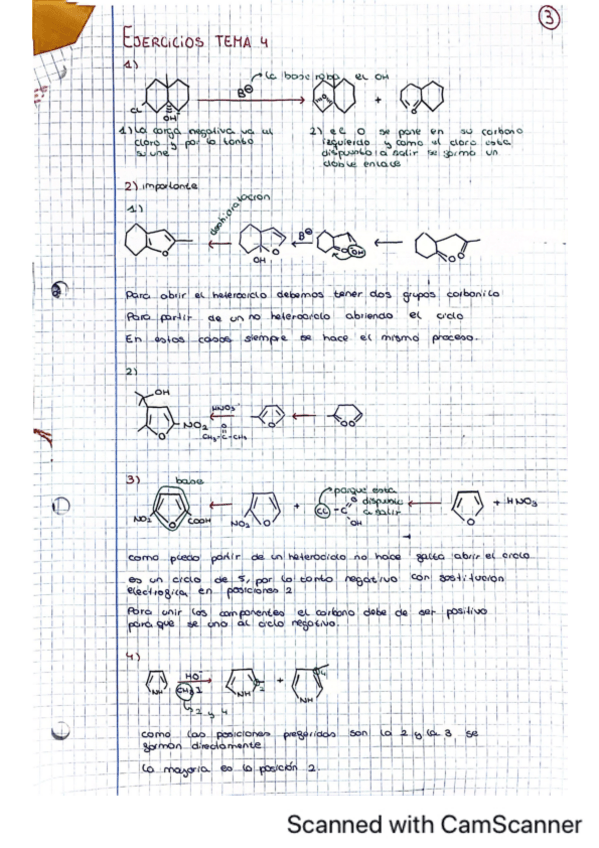 3
EJERCICIOS TEMA 4
1)
la base roba el OH
B⊖
CL
OH
O
+
O
1) La carga negativa va al
cloro y por lo tanto
se une
2) el O se pone en su carbono
izquierdo y como el cloro esta
dispuesto a salir se forma un
doble enlace
2) importante
1)
deshidratacion
B⊖
O
OH
O
OH
O O
Para abrir el heterociclo debemos tener dos grupos carbonilo
Para partir de un no heterociclo abriendo el ciclo
En estos casos siempre se hace el mismo proceso.
2)
OH
HNO3
NO2
O
CH3-C-CH3
O
O
O O
3)
base
porque esta
dispuesto
a salir
NO2
O
COOH
NO2
O
+
CL
-C
O
OH
O
+ HNO3
como puedo partir de un heterociclo no hace falta abrir el ciclo
es un ciclo de 5, por lo tanto negativo con sustitucion
electrofilica en posiciones 2
Para unir los componentes el carbono debe de ser positivo
para que se una al ciclo negativo.
4)
HO⁻
CH3 I
NH
NH
2
+
NH
4
2 y 4
como las posiciones preferidas son la 2 y la 3 se
forman directamente
La mayoria es la posición 2.
Scanned with CamScanner